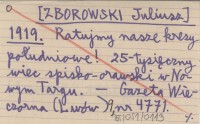 [ZBOROWSKI Juliusz]
1919. Ratujmy nasze kresy
południowe! 25-tysięczny
wiec spisko-orawski w No-
wym Targu. — Gazeta Wie-
czorna (Lwów), nr 4771.